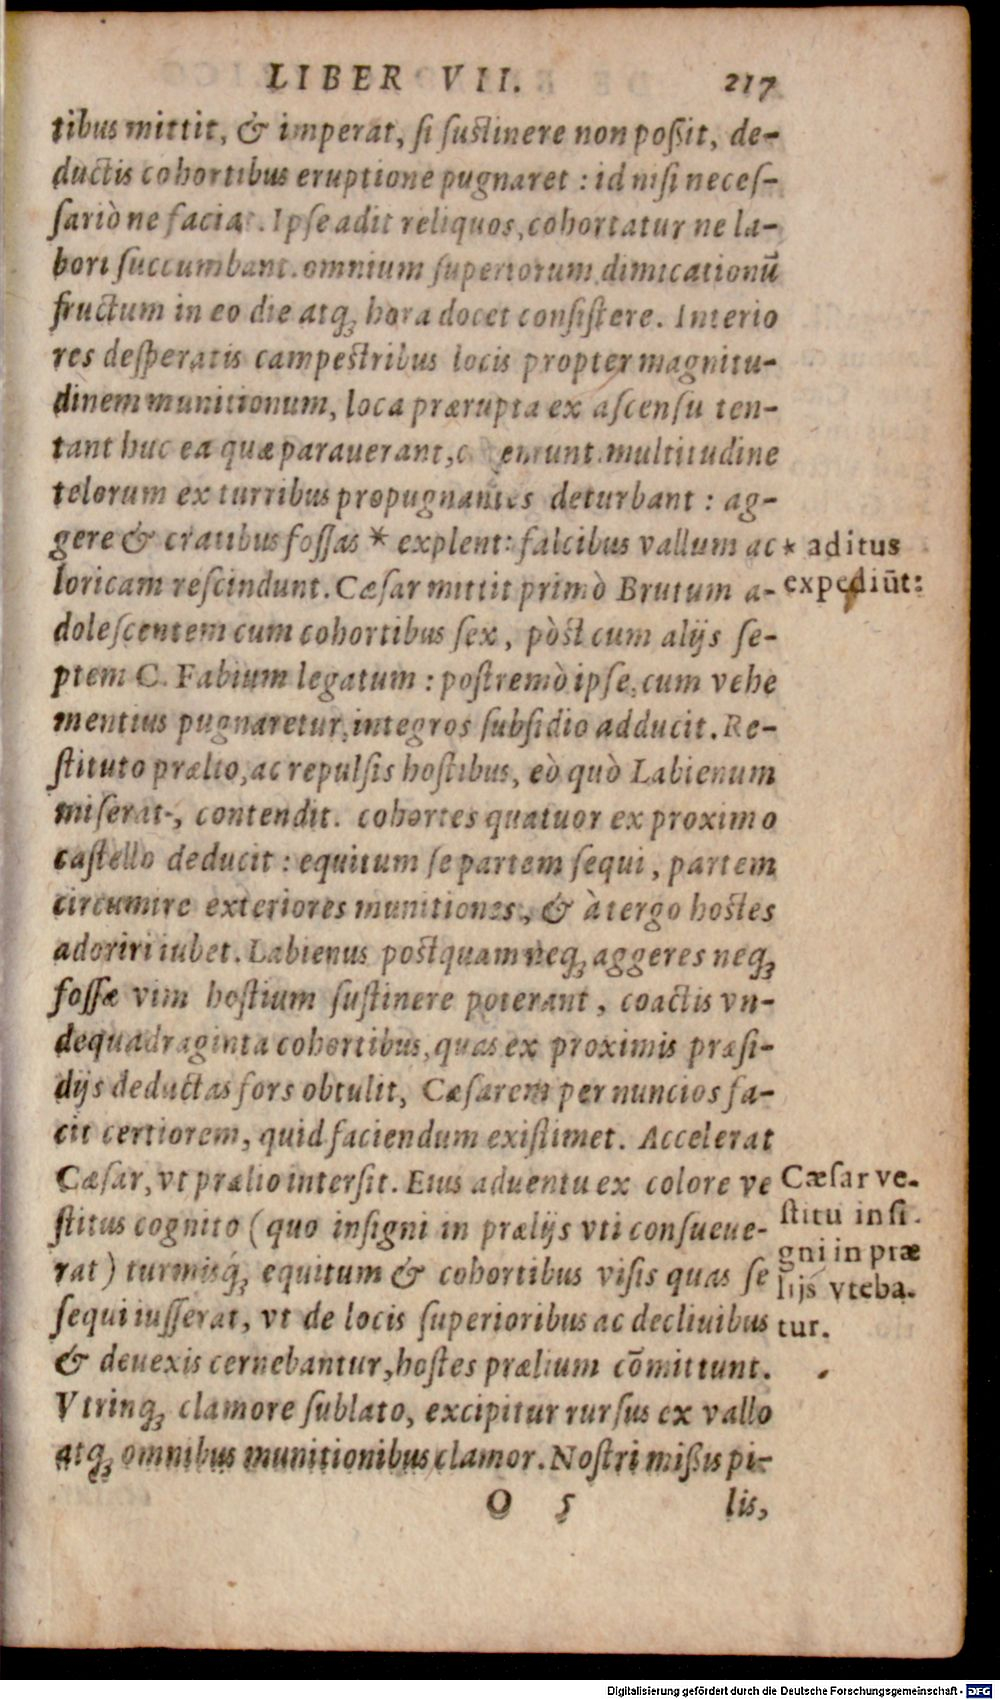 LIBER VII. 217
tibus mittit, & imperat, si sustinere non poßit, de-
ductis cohortibus eruptione pugnaret : id nisi neces-
sariò ne faciat. Ipse adit reliquos, cohortatur ne la-
bori succumbant. omnium superiorum dimicationū
fructum in eo die atq; hora docet consistere. Interio
res desperatis campestribus locis propter magnitu-
dinem munitionum, loca prærupta ex ascensu ten-
tant huc ea quæ parauerant, multitudine
telorum ex turribus propugnantes deturbant : ag-
gere & cratibus fossas * explent: falcibus vallum ac
loricam rescindunt. Cæsar mittit primò Brutum a-
dolescentem cum cohortibus sex, pòst cum alijs se-
ptem C. Fabium legatum : postremò ipse, cum vehe
mentius pugnaretur, integros subsidio adducit. Re-
stituto prælio, ac repulsis hostibus, eò quò Labienum
miserat, contendit. cohortes quatuor ex proximo
castello deducit : equitum se partem sequi, partem
circumire exteriores munitiones, & à tergo hostes
adoriri iubet. Labienus postquam neq; aggeres neq;
fossæ vim hostium sustinere poterant, coactis vn-
dequadraginta cohortibus, quas ex proximis præsi-
dijs deductas fors obtulit, Cæsarem per nuncios fa-
cit certiorem, quid faciendum existimet. Accelerat
Cæsar, vt prælio intersit. Eius aduentu ex colore ve
stitus cognito (quo insigni in prælijs vti consueue-
rat) turmisq́; equitum & cohortibus visis quas se
sequi iusserat, vt de locis superioribus ac decliuibus
& deuexis cernebantur, hostes prælium cōmittunt.
Vtrinq; clamore sublato, excipitur rursus ex vallo
atq; omnibus munitionibus clamor. Nostri mißis pi-
O 5 lis,
* aditus
expediūt:
Cæsar ve-
stitu insi-
gni in præ
lijs vteba-
tur.
Digitalisierung gefördert durch die Deutsche Forschungsgemeinschaft - DFG